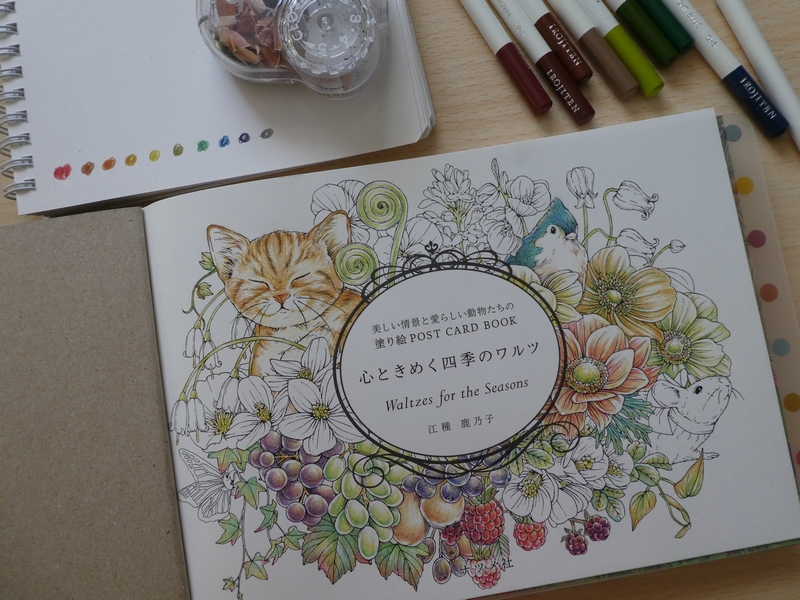 IROJITEN
IROJITEN
IROJITEN
美しい情景と愛らしい動物たちの
塗り絵 POST CARD BOOK
心ときめく四季のワルツ
Waltzes for the Seasons
江種 鹿乃子
ナツメ社